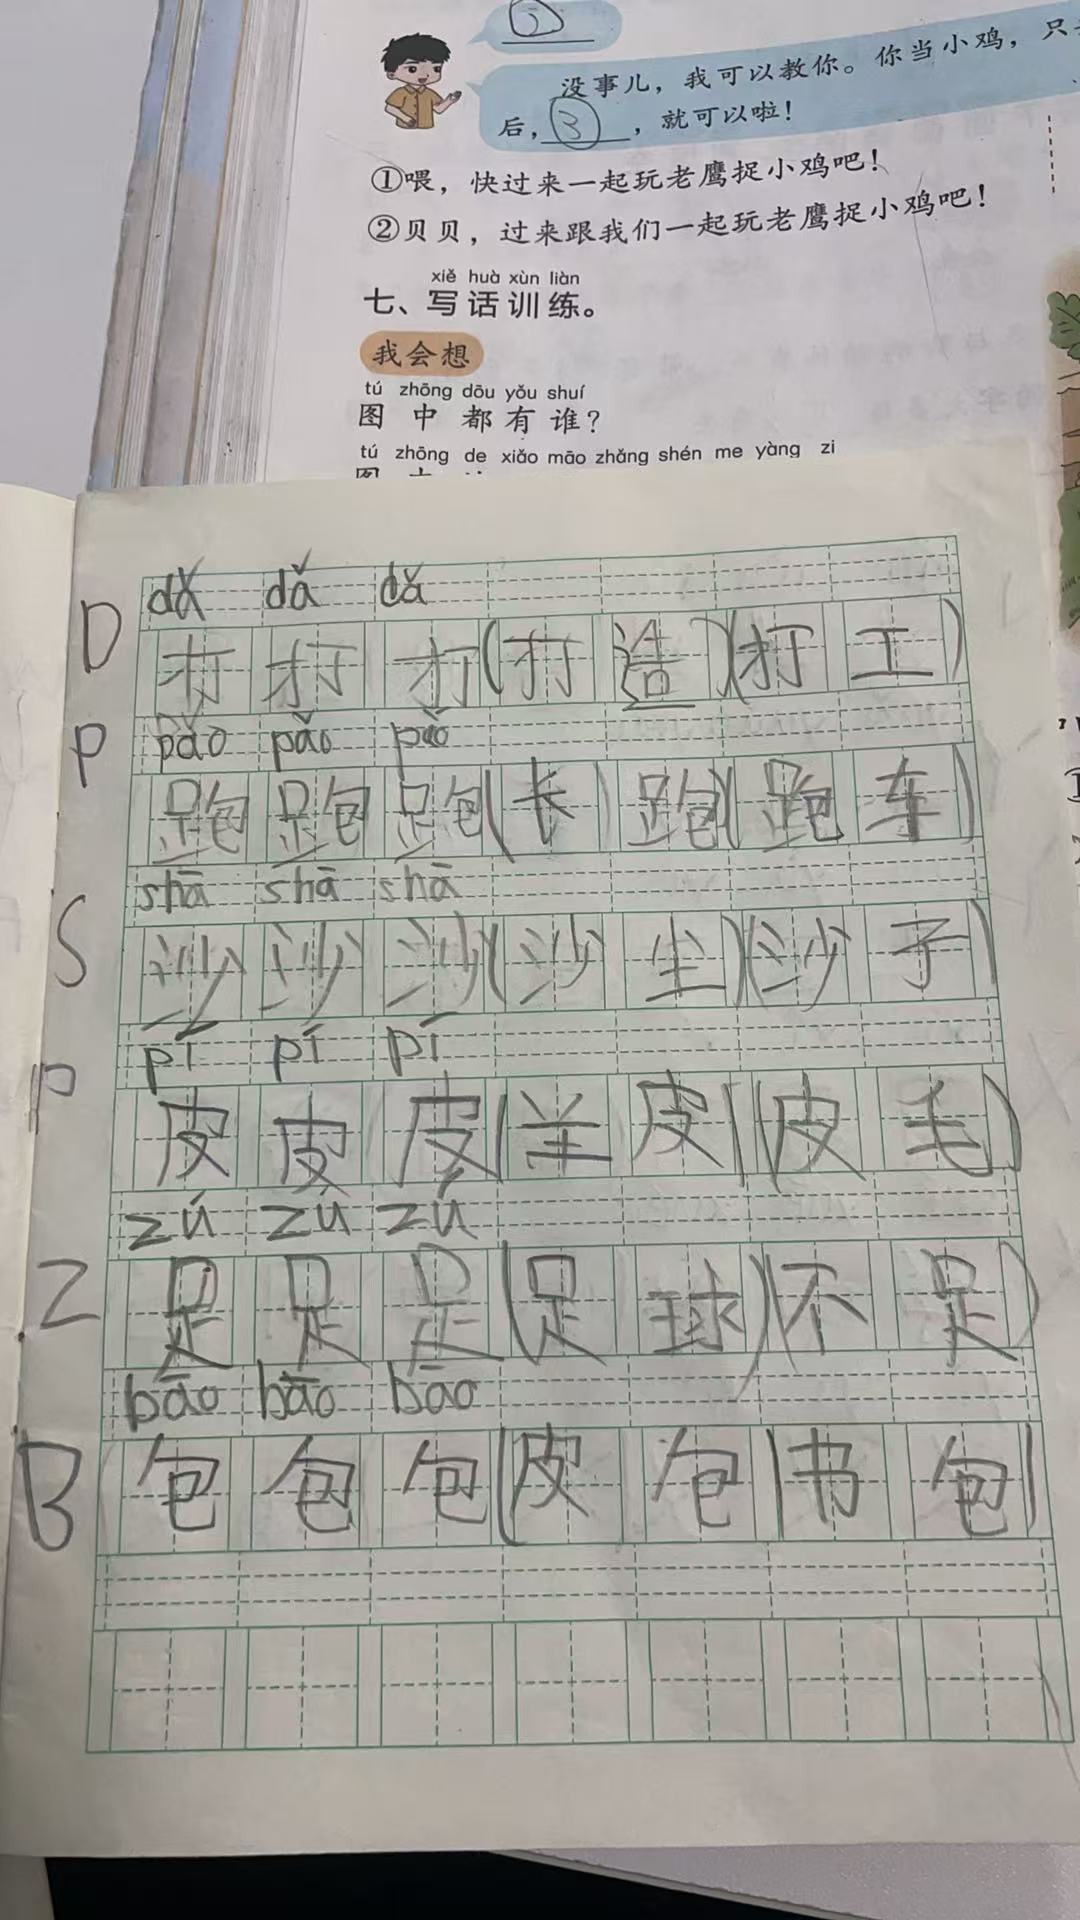 ②
没事儿，我可以教你。你当小鸡，只
后，③，就可以啦！
①喂，快过来一起玩老鹰捉小鸡吧！
②贝贝，过来跟我们一起玩老鹰捉小鸡吧！
xiě huà xùn liàn
七、写话训练。
我会想
tú zhōng dōu yǒu shuí
图中都有谁？
tú zhōng de xiǎo māo zhǎng shén me yàng zi
dǎ dǎ dǎ
D 打 打 打(打造)(打工)
pǎo pǎo pǎo
P 跑 跑 跑(长跑)(跑车)
shā shā shā
S 沙 沙 沙(沙尘)(沙子)
pí pí pí
P 皮 皮 皮(羊皮)(皮毛)
zú zú zú
Z 足 足 足(足球)(不足)
bāo bāo bāo
B 包 包 包(皮包)(书包)